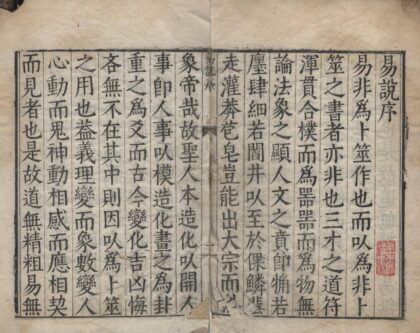 易說序
易非為卜筮作也而以為非卜
筮之書者亦非也三才之道符
渾貫合樸而為噐噐而為物無
論法象之顯人文之賁即犕若
廛肆細若閭井以至於僕鱗蜚
走灌莽苞皂豈能出大宗而
象帝哉故聖人本造化以開人
事即人事以模造化畫之為卦
重之為爻而古今變化吉凶悔
吝無不在其中則因以為卜筮
之用也蓋義理變而象數變人
心動而鬼神動相感而應相契
而見者也是故道無精粗易無